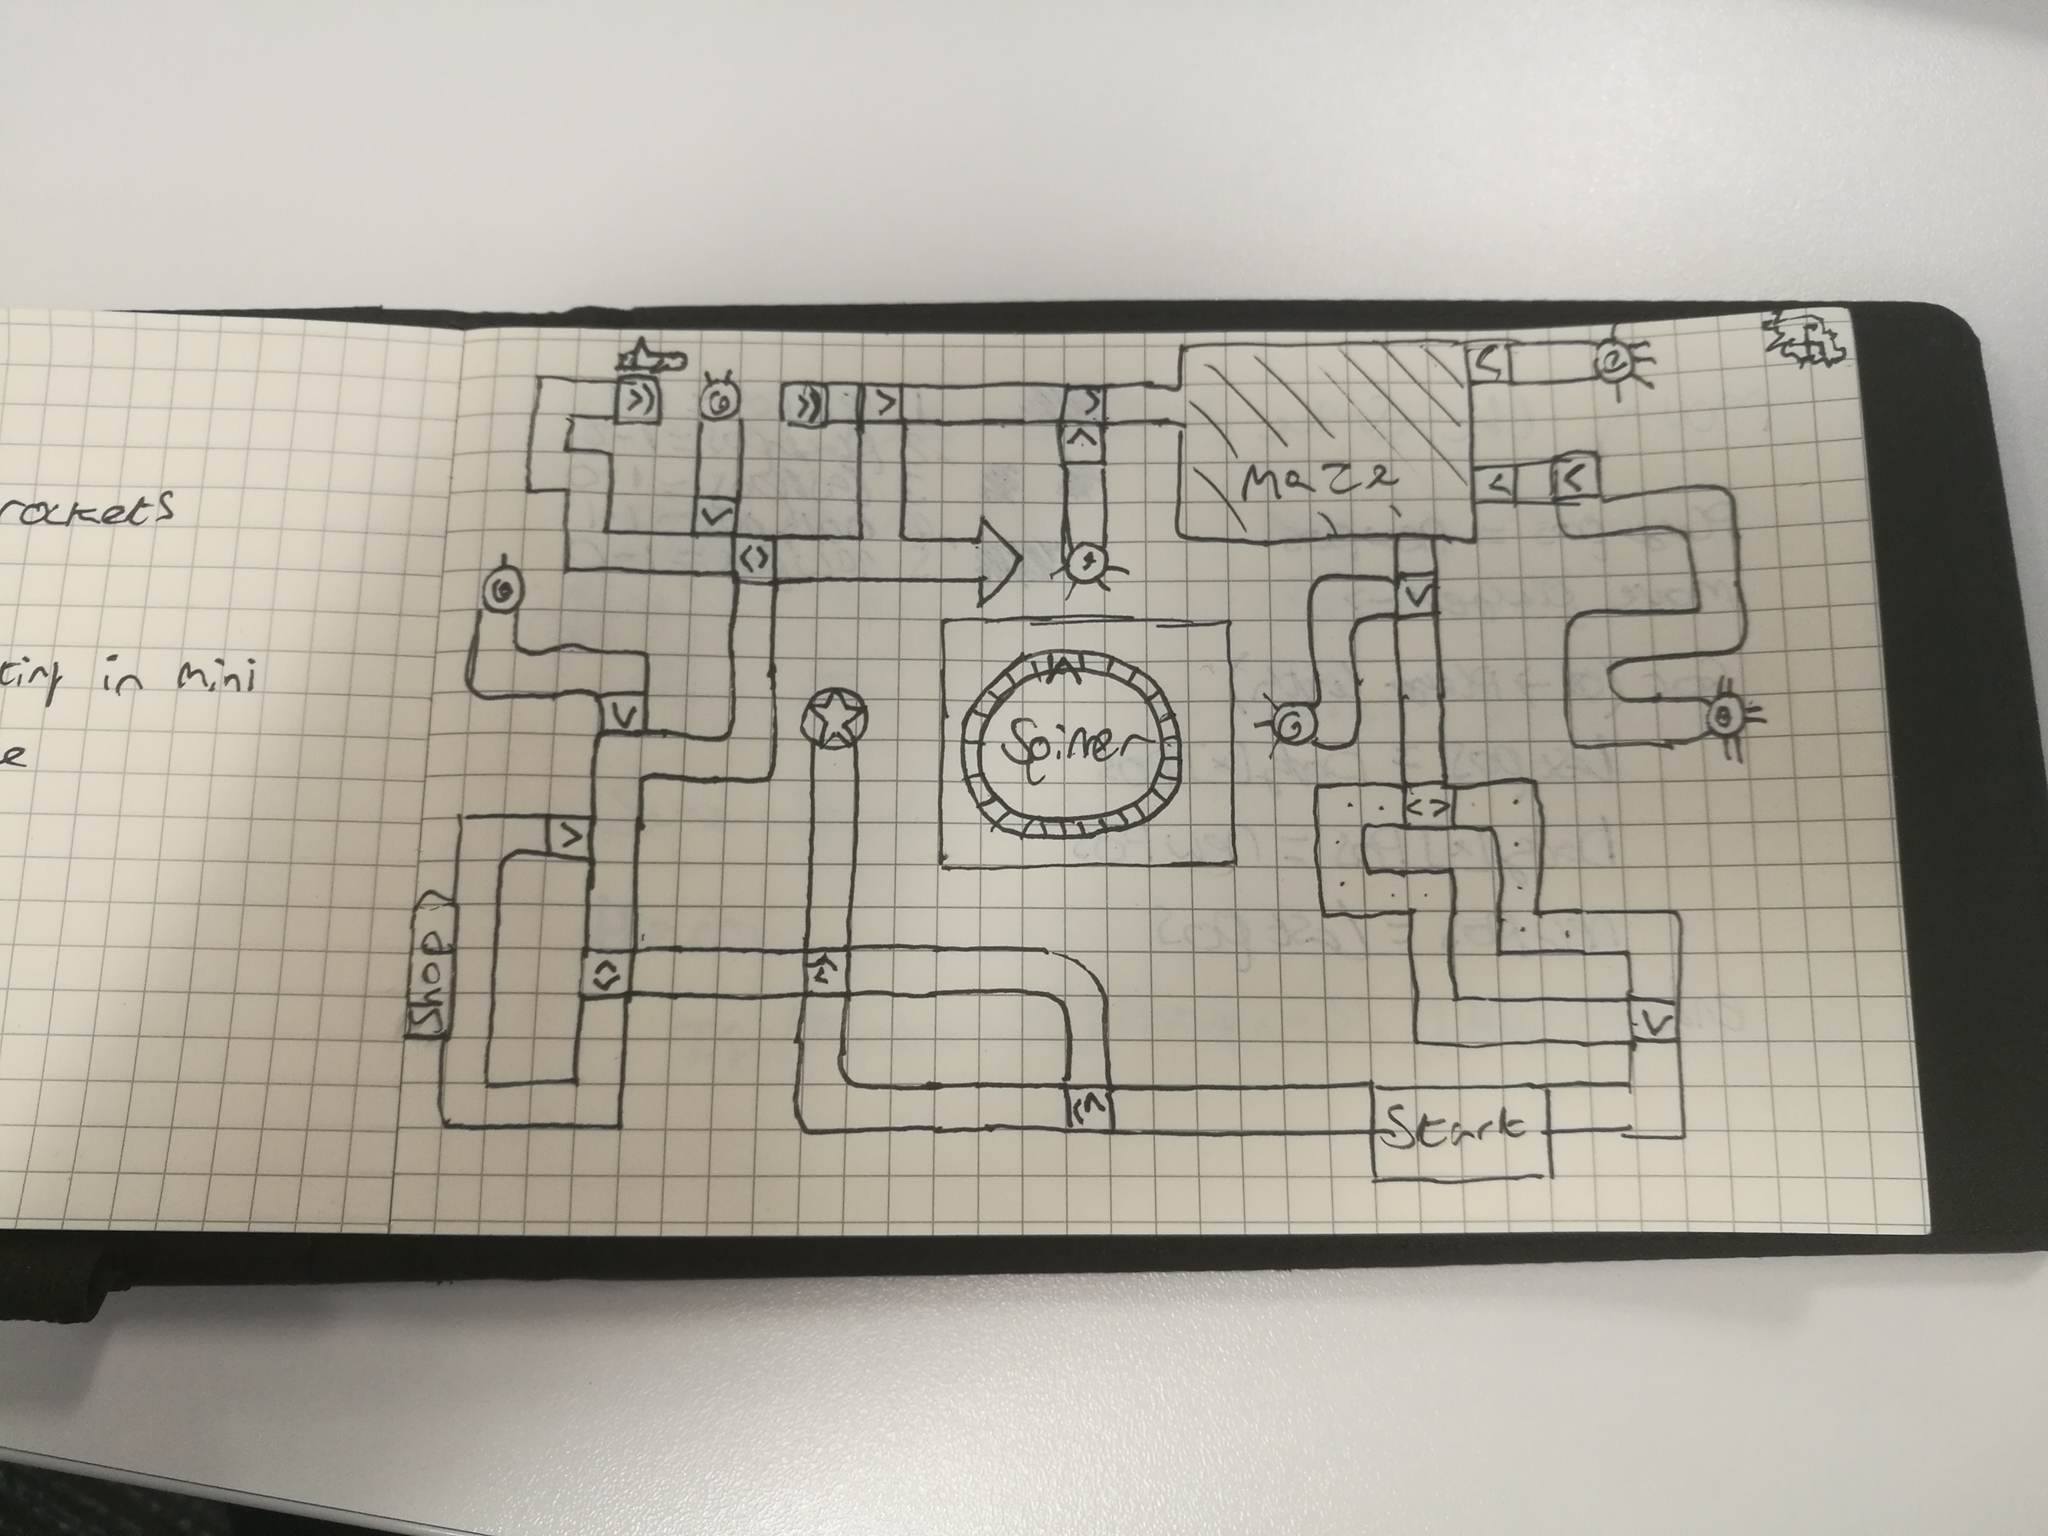 rockets
ting in mini
e
Maze
Spiner
Shop
Start